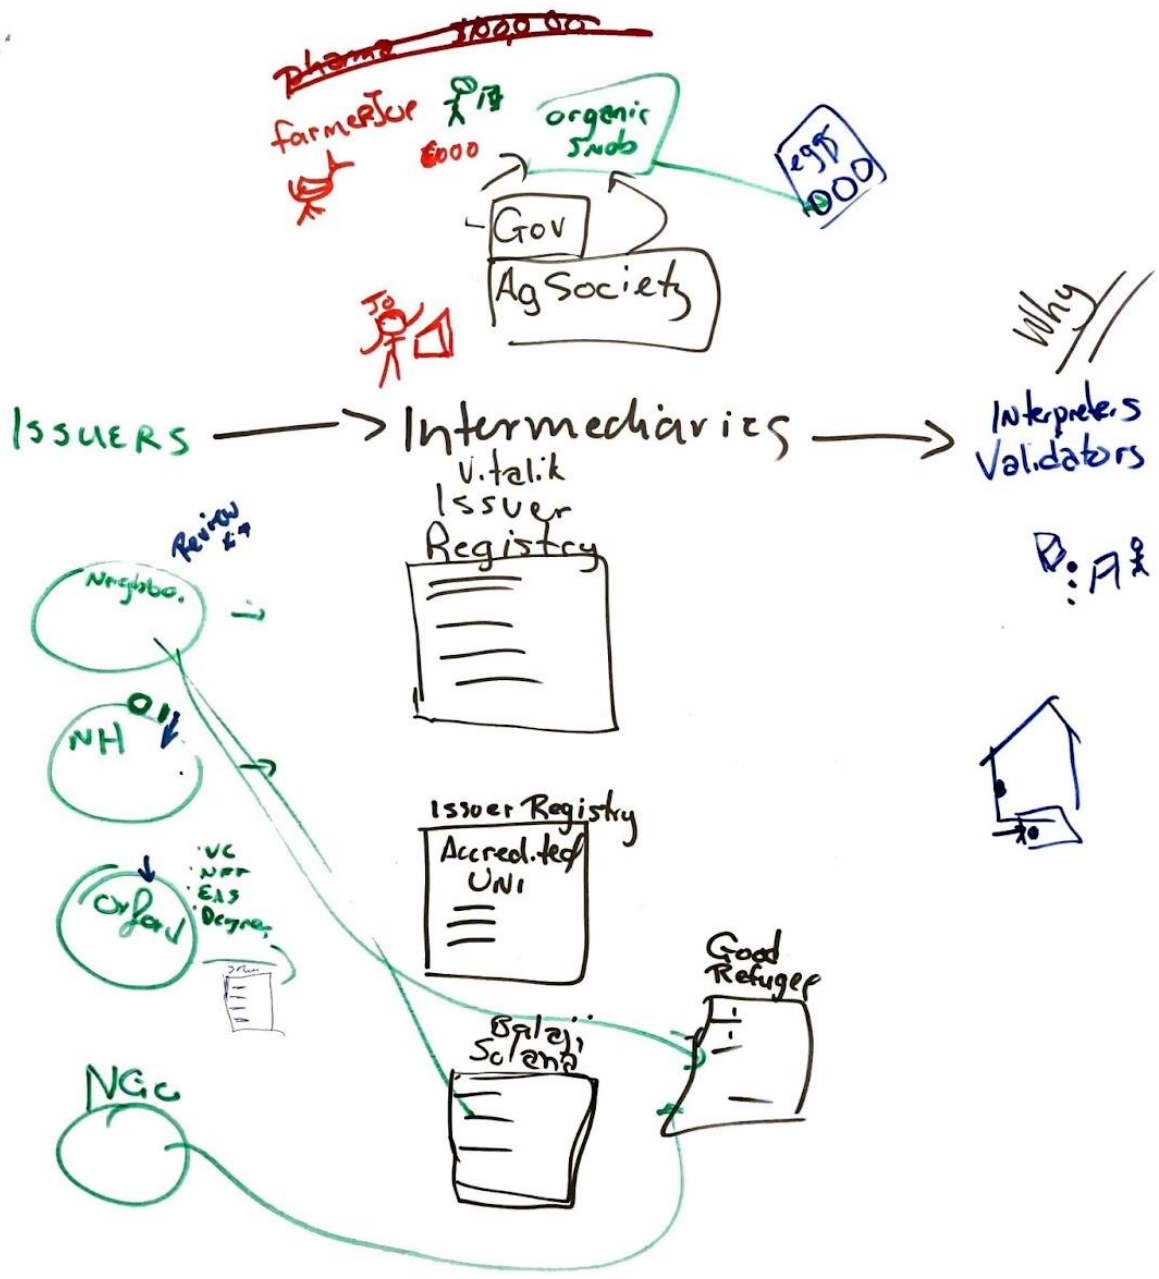 pharma $100,000
farmer Joe
organic
snob
eggs
000
Gov
Ag Society
Jo
Why
ISSUERS
Intermediaries
Interpreters
Validators
Vitalik
Issuer
Registry
Review
Neighbo.
NH
0.1
Issuer Registry
Accredited
UNI
Oxford
VC
NFT
EAS
Degree
Good
Refugee
Balaji
Solana
NGO